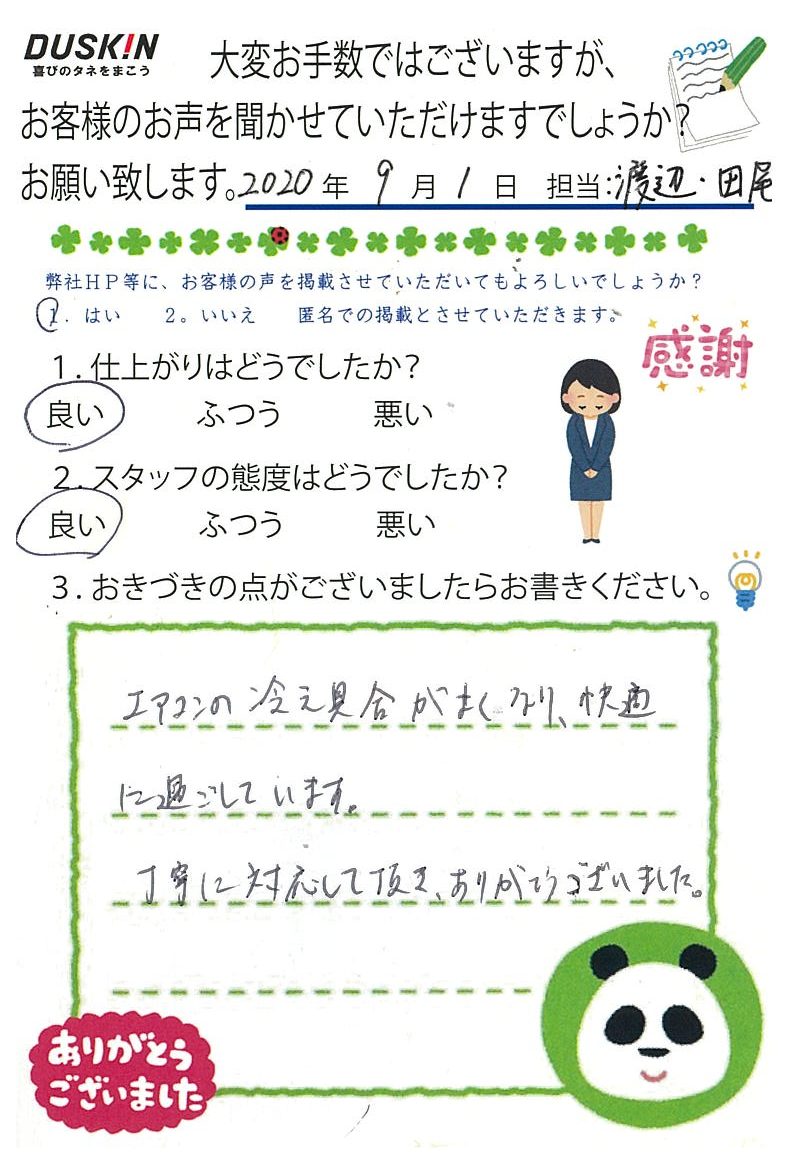 DUSK!N
喜びのタネをまこう
大変お手数ではございますが、
お客様のお声を聞かせていただけますでしょうか?
お願い致します。2020年 9月1日 担当:渡辺・田尾
弊社HP等に、お客様の声を掲載させていただいてもよろしいでしょうか?
1. はい 2。いいえ 匿名での掲載とさせていただきます。
感謝
1. 仕上がりはどうでしたか?
良い ふつう 悪い
2. スタッフの態度はどうでしたか?
良い ふつう 悪い
3. おきづきの点がございましたらお書きください。
エアコンの冷え具合がよくなり、快適
に過ごしています。
丁寧に対応して頂き、ありがとうございました。
ありがとう
ございました